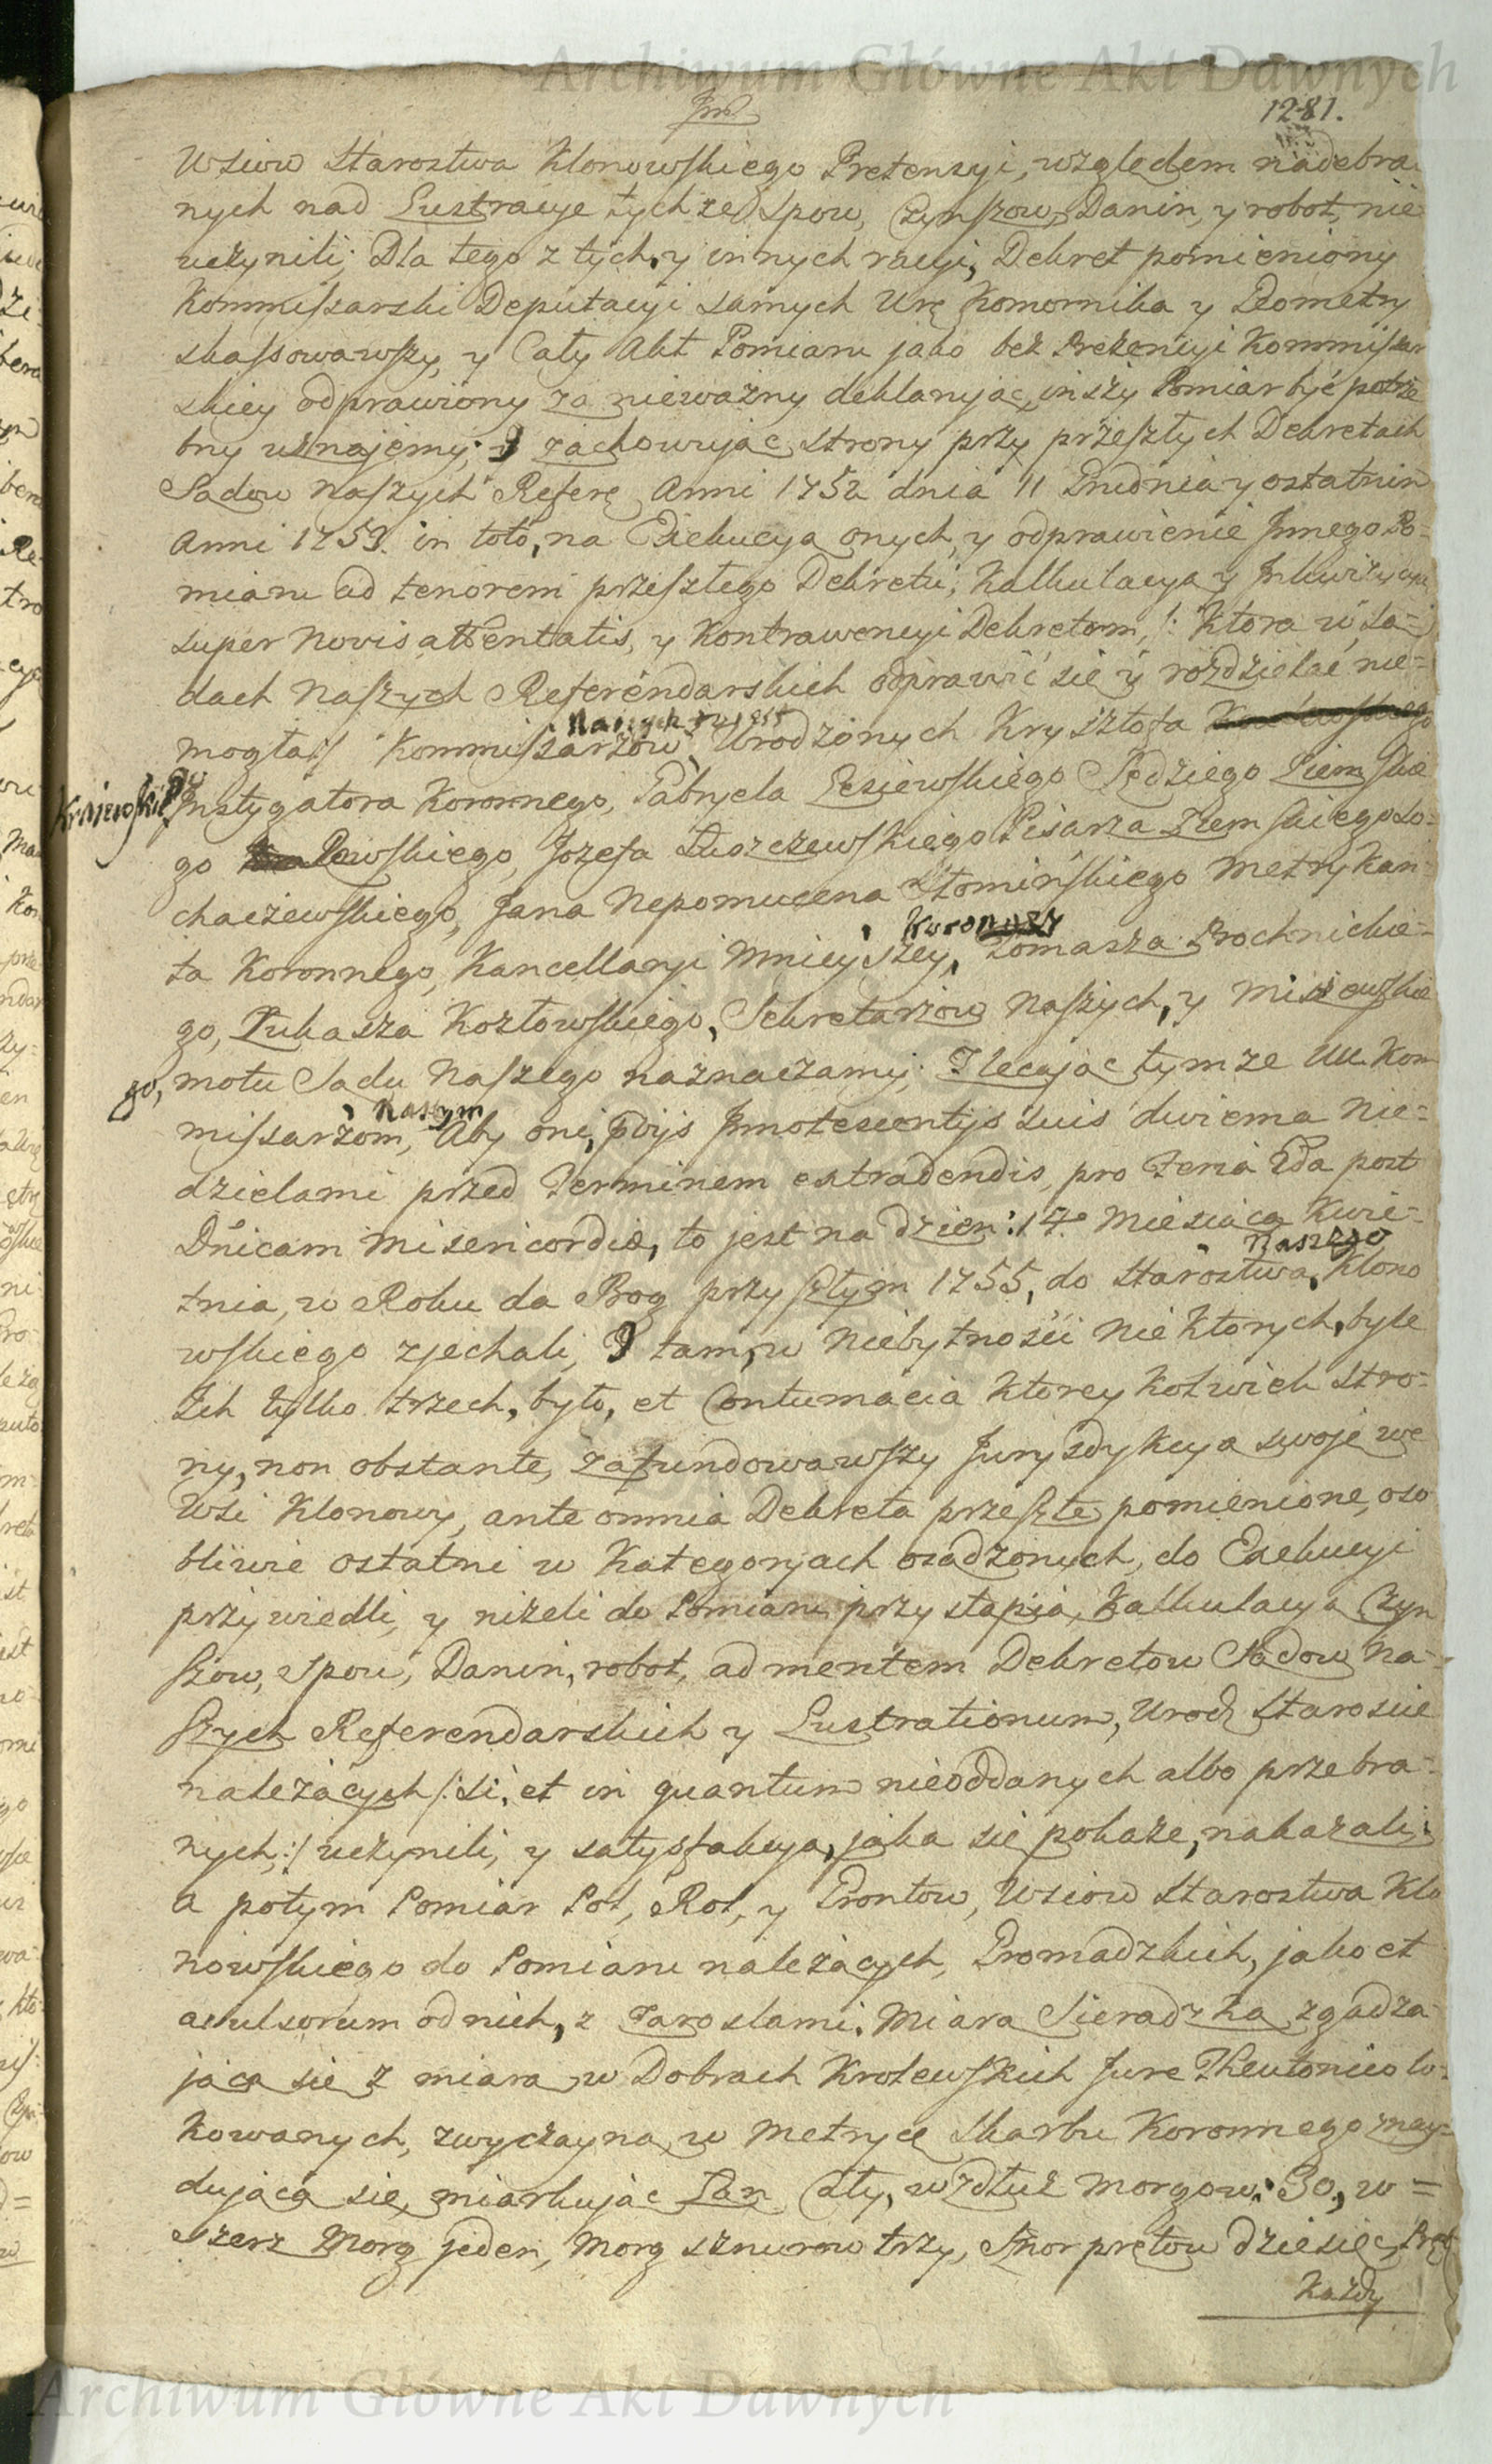 Archiwum Główne Akt Dawnych
1281.
Wsiow Starostwa Klonowskiego Pretensyi, względem nadebra-
nych nad Lustracye tychże Spow, Czynszow, Danin, y robot, nie
uczynili; Dla tego z tych, y innych racyi, Dekret pomieniony
Kommissarski Deputacyi samych Ur Komornika y Geometry
skassowawszy, y Cały Akt Pomiaru jako bez Prezencyi Kommissar
skiey odprawiony za nieważny deklaryjąc, inszy Pomiar być potrze
bny uznajemy; I zachowując strony przy przeszłych Dekretach
Sadow Naszych Refer Anni 1752 dnia 11 Grudnia y ostatnim
Anni 1753. in toto, na Exekucyą onych, y odprawienie Innego Po=
miaru ad tenorem przeszłego Dekretu, Kalkulacyą y Inkwizycyą
super novis attentatis, y Kontrawencyi Dekretom, /: Która w Są=
dach Naszych Referendarskich odprawić się y rozdzielać nie=
mogła:/ Kommissarzow Naszych Urodzonych Krysztofa
Krajewskiego
Instygatora Koronnego, Gabryela Lesiewskiego Sędziego Ziemskie
go Rawskiego, Jozefa Łuszczewskiego Pisarza Ziemskiego So=
chaczewskiego, Jana Nepomucena Słomińskiego Metrykan=
ta Koronnego, Kancellaryi Mnieyszey Koronney, Tomasza Prochnickie=
go, Łukasza Kozłowskiego, Sekretarzow Naszych, y
go, motu Sądu Naszego naznaczamy; Zlecając tymże UU. Kom
missarzom Naszym, Aby oni, pdijs Innotescentijs suis dwiema Nie=
dzielami przed Terminem extradendis, pro Feria 2da post
Dnicam Misericordiæ, to jest na dzień: 14. Miesiąca Kwie=
tnia, w Roku da Bog przyszłym 1755, do Starostwa Naszego Klono
wskiego zjechali, I tam, w niebytności niektorych, byle
ich tylko trzech, było, et Contumacia ktorey kolwiek stro=
ny, non obstante, zafundowawszy Jurysdykcyą swoję we
Wsi Klonowy, ante omnia Dekreta przeszłe pomienione, oso
bliwie ostatni w Kategoryach osądzonych, do Exekucyi
przywiedli, y niżeli do Pomiaru przystąpią, Kalkulacyą Czyn
szow, Spow, Danin, robot, ad mentem Dekretow Sądow Na=
szych Referendarskich y Lustrationum, Urodz Staroscie
należących /: Si, et in quantum nieoddanych albo przebra=
nych,:/ uczynili, y satysfakcyą, jaka się pokaże, nakazali;
a potym Pomiar Pol, Rol, y Grontow, Wsiow Starostwa Klo
nowskiego do Pomiaru należących, Gromadzkich, jako et
avulsorum od nich, z Zaroslami. Miarą Sieradzką, zgadza
jącą się z miarą w Dobrach Krolewskich Jure Theutonico lo=
kowanych, zwyczayną, w Metryce Skarbu Koronnego znay=
dującą się, miarkując Łan Cały, wzdłuż morgow: 30, w=
szerz Morg jeden, Morg sznurow trzy, Sznor prętow dziesięć, Pręt
Każdy
Archiwum Główne Akt Dawnych